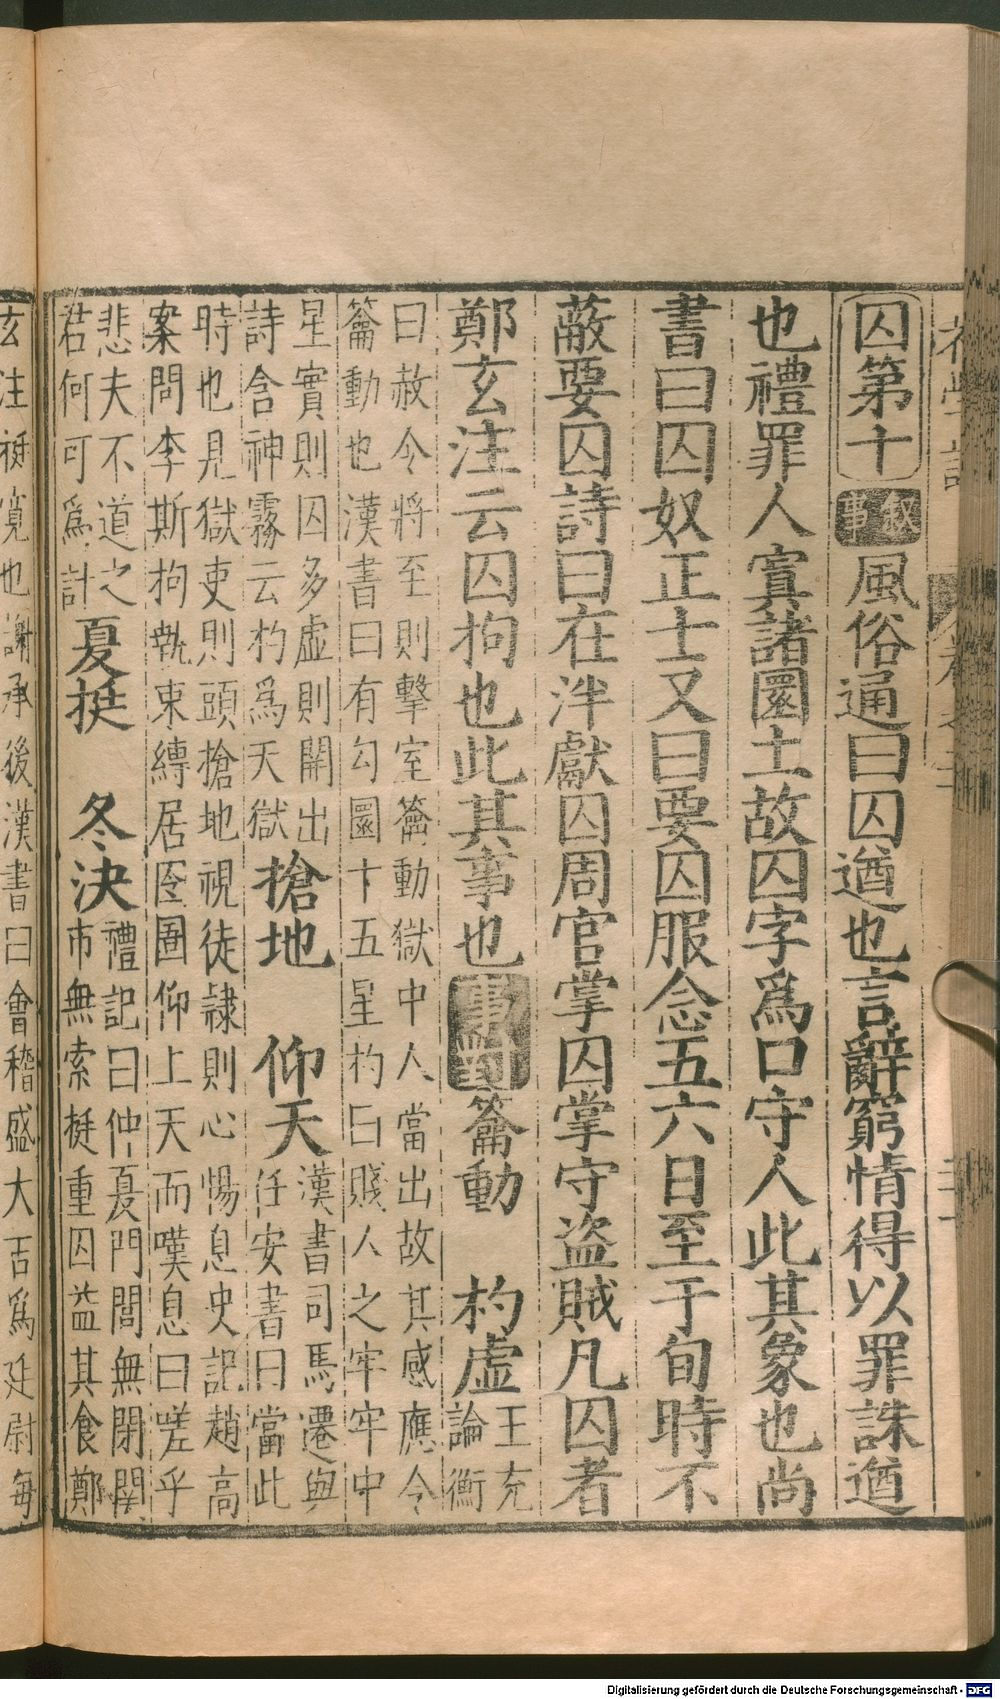 囚第十 敘事 風俗通曰囚遒也言辭窮情得以罪誅遒
也禮罪人寘諸圜土故囚字爲口守人此其象也尚
書曰囚奴正士又曰要囚服念五六日至于旬時不
蔽要囚詩曰在泮獻囚周官掌囚掌守盜賊凡囚者
鄭玄注云囚拘也此其事也 事對 籥動 杓虛 王充
論衡
曰赦令將至則擊室籥動獄中人當出故其感應令
籥動也漢書曰有勾圜十五星杓曰賤人之牢牢中
星實則囚多虛則開出
詩含神霧云杓爲天獄 搶地 仰天 漢書司馬遷與
任安書曰當此
時也見獄吏則頭搶地視徒隷則心惕息史記趙高
案問李斯拘執束縛居囹圄仰上天而嘆息曰嗟乎
悲夫不道之
君何可爲計 夏挺 冬決 禮記曰仲夏門閭無閉關
市無索挺重囚益其食鄭
玄注挺寬也謝承後漢書曰會稽盛大吉爲廷尉每
Digitalisierung gefördert durch die Deutsche Forschungsgemeinschaft - DFG